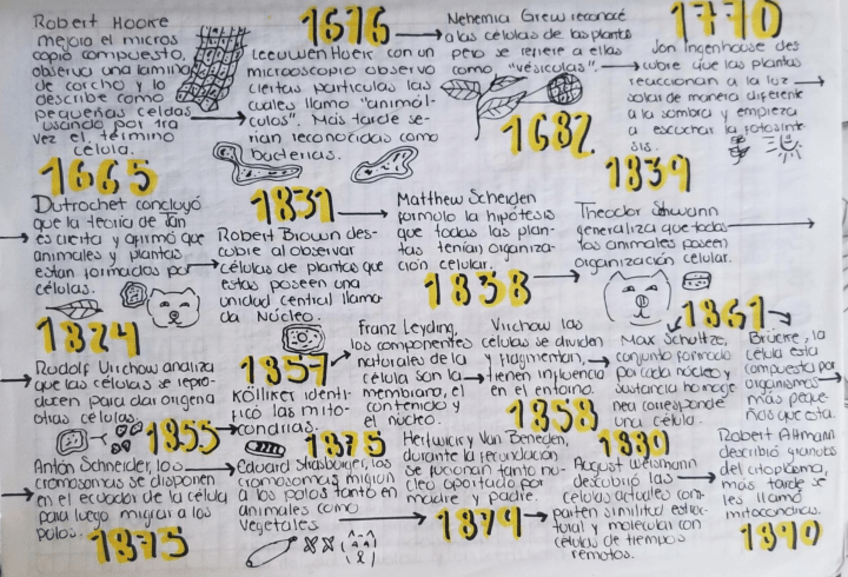 Robert Hooke
mejora el micros
copio compuesto,
observa una lamina
de corcho y lo
describe como
pequeñas celdas
usando por 1ra
vez el término
célula.
1665
1676
Leeuwen Hoek con un
microscopio observo
ciertas particulas las
cuales llamo "animál-
culos". Más tarde se-
rían reconocidas como
bacterias.
Nehemia Grew reconocé
a las células de las plantas
pero se refiere a ellas
como "vésiculas".
1682
1770
Jon Ingenhouse des
cubre que las plantas
reaccionan a la luz
solar de manera diferente
a la sombra y empieza
a escuchar la fotosínte
sis.
Dutrochet concluyó
que la teoría de
es cierta y afirmó que
animales y plantas
estan formados por
células.
1824
1831
Robert Brown des-
cubre al observar
células de plantas que
estas poseen una
unidad central llama-
da Núcleo.
Matthew Scheiden
formulo la hipótesis
que todas las plan-
tas tenían organiza-
ción celular.
1838
1839
Theodor Shwann
generaliza que todos
los animales poseen
organización celular.
Rudolf Virchow analiza
que las células se repro-
ducen para dar origen a
otras células.
1855
1857
Kölliker identi-
ficó las mito-
condrias.
Franz Leyding,
los componentes
naturales de la
célula son la
membrana, el
contenido y
el núcleo.
Virchow las
células se dividen
y fragmentan,
tienen influencia
en el entorno.
1858
1861
Max Schultze,
conjunto formado
por cada núcleo y
sustancia homoge
nea corresponde
una célula.
Brücke, la
célula esta
compuesta por
organismos
más peque-
ños que esta.
Antón Schneider, los
cromosomas se disponen
en el ecuador de la célula
para luego migrar a los
polos.
1875
1875
Eduard Strasburger, los
cromosomas migran
a los polos tanto en
animales como
vegetales
Hertwick y Van Beneden,
durante la fecundación
se fucionan tanto nú-
cleo aportado por
madre y padre.
1879
1880
August Weismann
descubrió las
células actuales com-
parten similitud estruc-
tural y molecular con
células de tiempos
remotos.
Robert Altmann
describió granulos
del citoplasma,
más tarde se
les llamó
mitocondrias.
1890